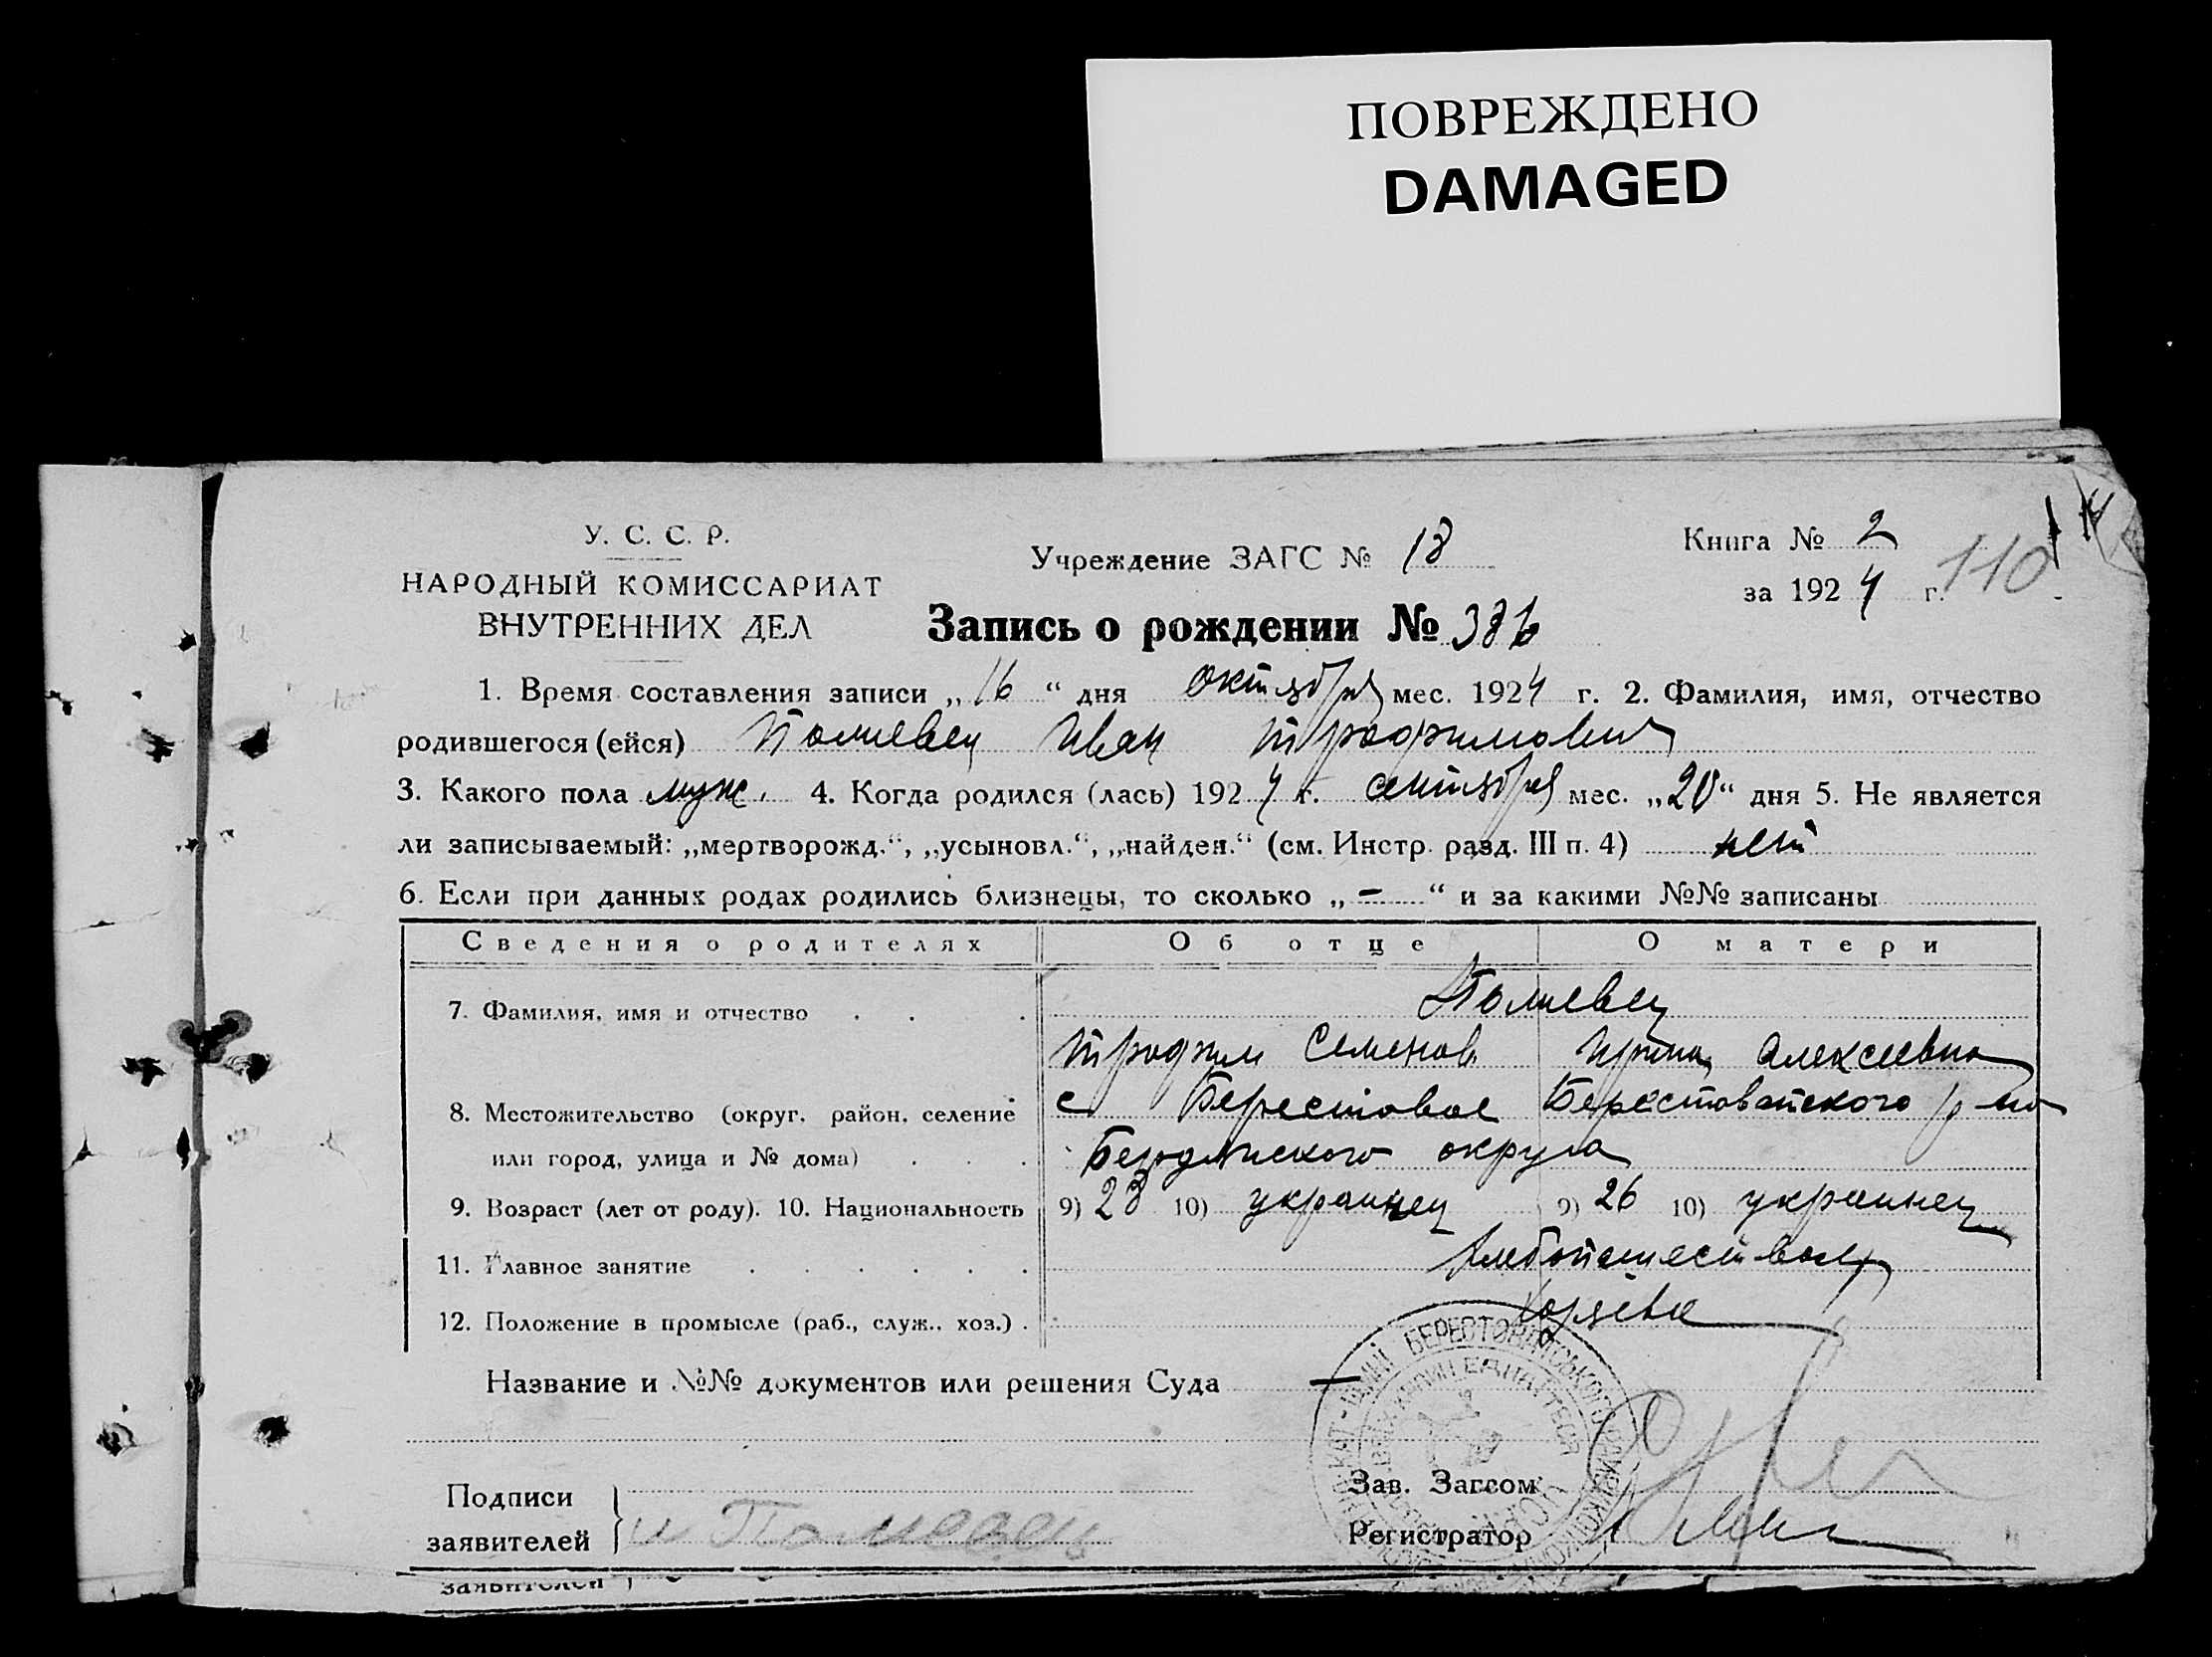 ПОВРЕЖДЕНО
DAMAGED
У. С. С. Р.
НАРОДНЫЙ КОМИССАРИАТ
ВНУТРЕННИХ ДЕЛ
Учреждение ЗАГС № 18
Книга № 2
за 1924 г.
110
Запись о рождении № 386
1. Время составления записи „16“ дня октября мес. 1924 г. 2. Фамилия, имя, отчество
родившегося (ейся) Полшевец Иван Трофимович
3. Какого пола муж. 4. Когда родился (лась) 1924 г. сентября мес. „20“ дня 5. Не является
ли записываемый: „мертворожд.“, „усыновл.“, „найден.“ (см. Инстр. разд. III п. 4) нет
6. Если при данных родах родились близнецы, то сколько „ – “ и за какими №№ записаны
Сведения о родителях Об отце О матери
7. Фамилия, имя и отчество . . . Полшевец
Трофим Семенов Ирина Алексеевна
8. Местожительство (округ, район, селение с Берестовое Берестоватского р-на
или город, улица и № дома) . . . Бердянского округа
9. Возраст (лет от роду). 10. Национальность 9) 23 10) украинец 9) 26 10) украинец
11. Главное занятие . . . . . . Хлебопашество
12. Положение в промысле (раб., служ., хоз.) . хозяева
Название и №№ документов или решения Суда —
БЕРЕСТОВАТСЬКОГО
Подписи
заявителей
Зав. Загсом
Регистратор
заявителей